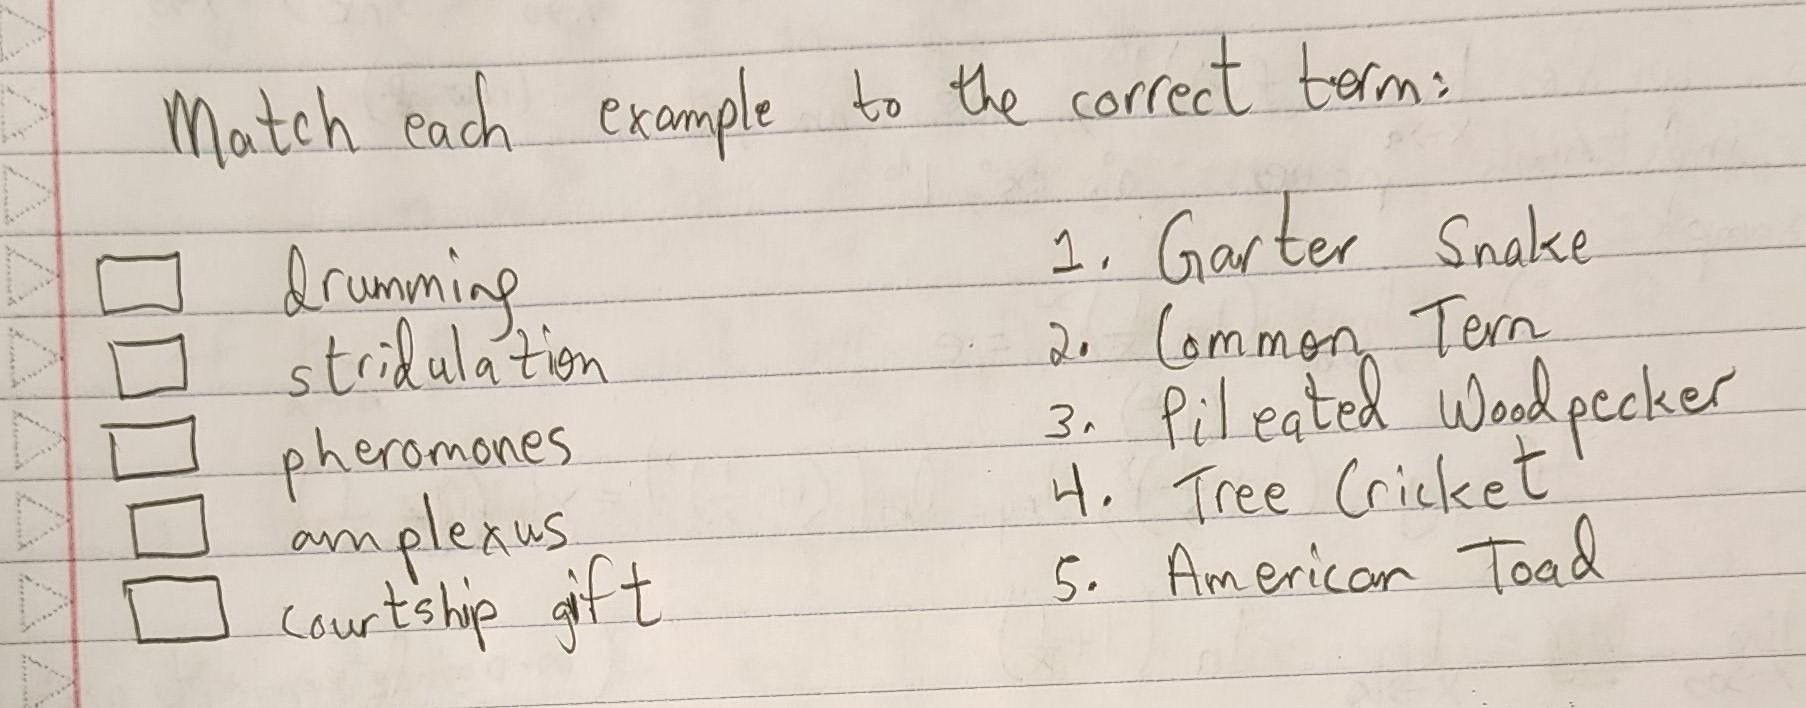 Match each example to the correct term:
drumming 1. Garter Snake
stridulation 2. Common Tern
pheromones 3. Pileated Woodpecker
amplexus 4. Tree Cricket
courtship gift 5. American Toad